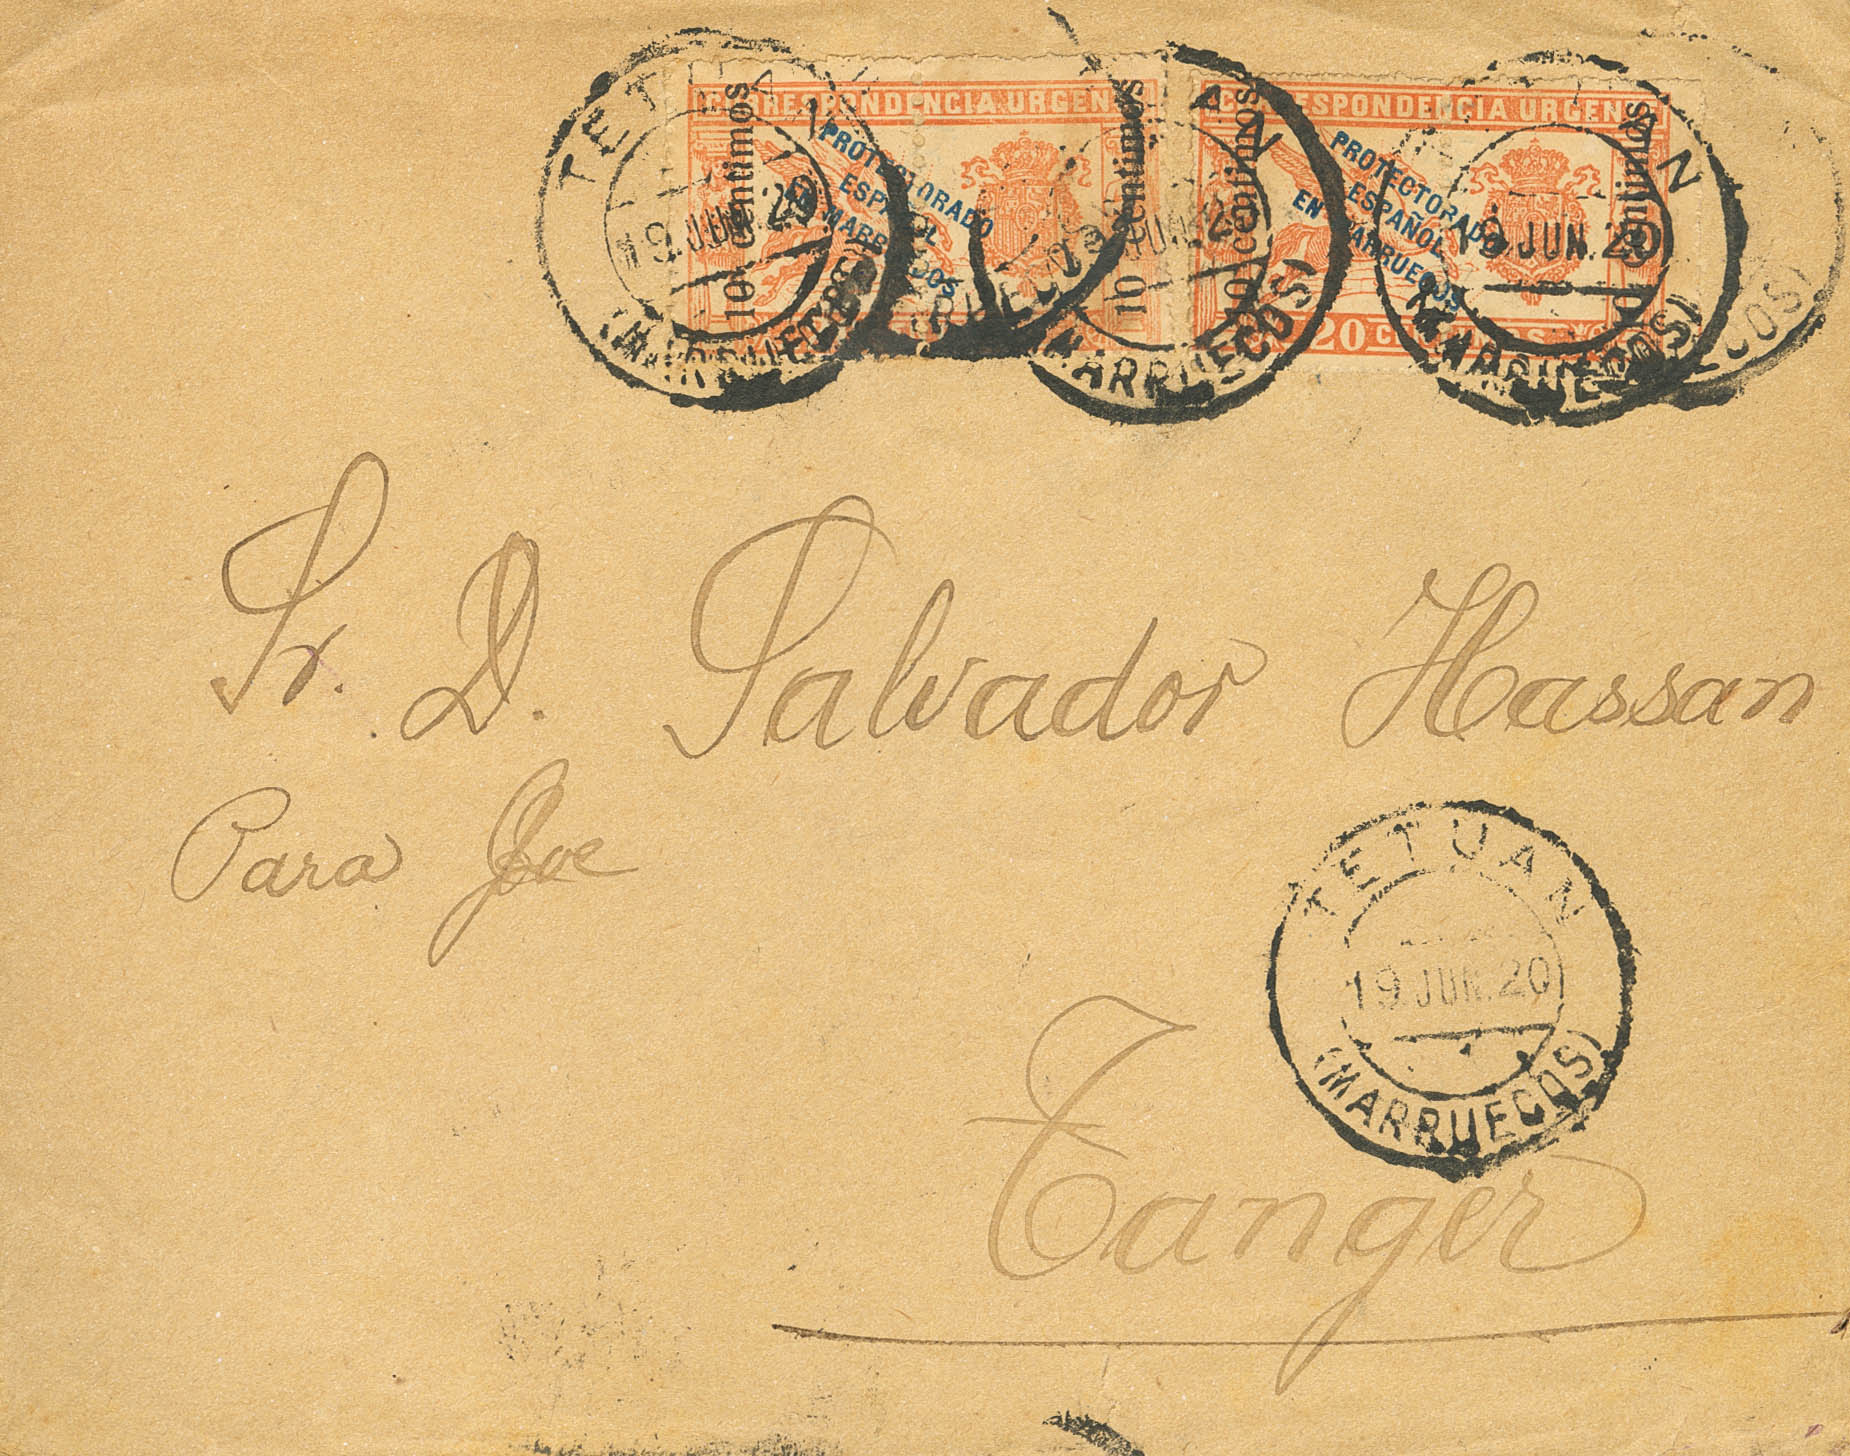 CORRESPONDENCIA URGENTE
PROTECTORADO
ESPAÑOL
EN MARRUECOS
10 centimos
10 centimos
CORRESPONDENCIA URGENTE
PROTECTORADO
ESPAÑOL
EN MARRUECOS
10 centimos
centimos
20 CENTIMOS
TETUAN
19.JUN.20
(MARRUECOS)
AN
JUN.2
(MARRUECOS)
AN
19.JUN.20
(MARRUECOS)
Sr. D. Salvador Hassan
Para Joe
TETUAN
19.JUN.20
(MARRUECOS)
Tanger